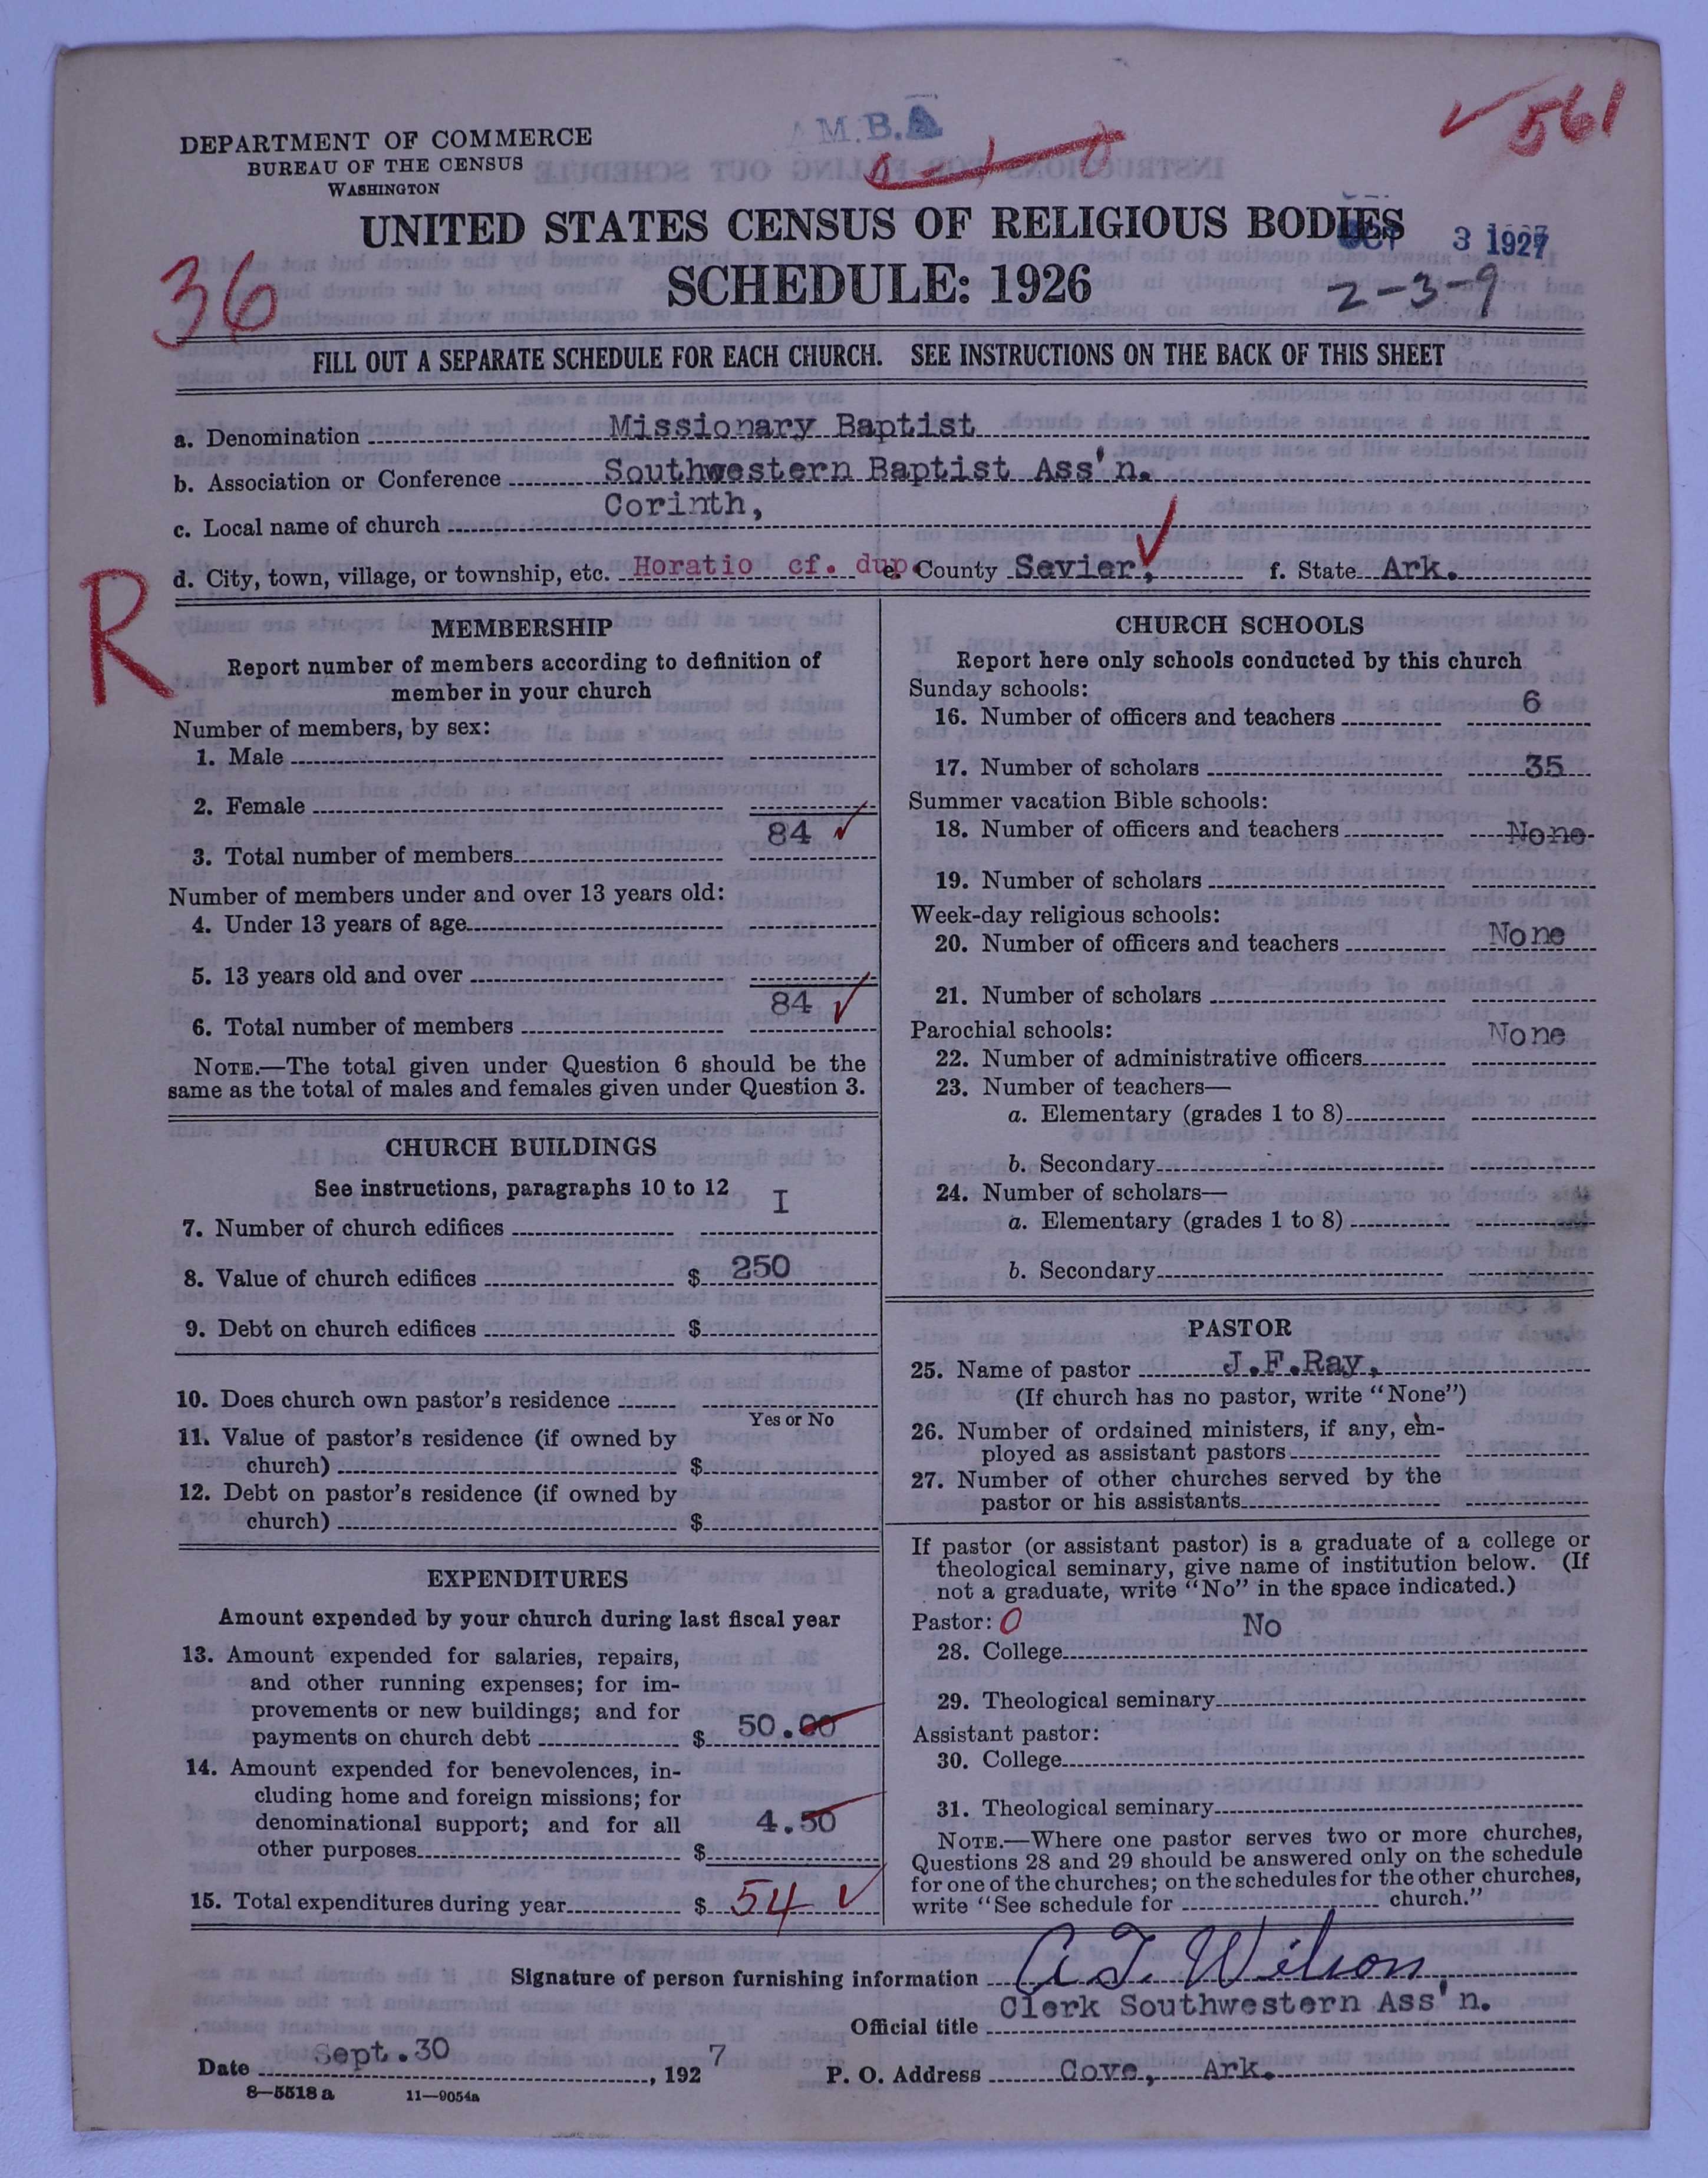 DEPARTMENT OF COMMERCE
BUREAU OF THE CENSUS
WASHINGTON
A.M.B.A
561
UNITED STATES CENSUS OF RELIGIOUS BODIES
OCT 3 1927
36
SCHEDULE: 1926
2-3-9
FILL OUT A SEPARATE SCHEDULE FOR EACH CHURCH. SEE INSTRUCTIONS ON THE BACK OF THIS SHEET
a. Denomination Missionary Baptist
b. Association or Conference Southwestern Baptist Ass'n.
c. Local name of church Corinth,
d. City, town, village, or township, etc. Horatio cf. dup. e. County Sevier, f. State Ark.
R
MEMBERSHIP
Report number of members according to definition of
member in your church
Number of members, by sex:
1. Male
2. Female
3. Total number of members 84 ✓
Number of members under and over 13 years old:
4. Under 13 years of age
5. 13 years old and over
6. Total number of members 84 ✓
NOTE.—The total given under Question 6 should be the
same as the total of males and females given under Question 3.
CHURCH BUILDINGS
See instructions, paragraphs 10 to 12
7. Number of church edifices I
8. Value of church edifices $ 250
9. Debt on church edifices $
10. Does church own pastor's residence
Yes or No
11. Value of pastor's residence (if owned by
church) $
12. Debt on pastor's residence (if owned by
church) $
EXPENDITURES
Amount expended by your church during last fiscal year
13. Amount expended for salaries, repairs,
and other running expenses; for im-
provements or new buildings; and for
payments on church debt $ 50.00
14. Amount expended for benevolences, in-
cluding home and foreign missions; for
denominational support; and for all
other purposes $ 4.50
15. Total expenditures during year $ 54 ✓
CHURCH SCHOOLS
Report here only schools conducted by this church
Sunday schools:
16. Number of officers and teachers 6
17. Number of scholars 35
Summer vacation Bible schools:
18. Number of officers and teachers None
19. Number of scholars
Week-day religious schools:
20. Number of officers and teachers None
21. Number of scholars
Parochial schools:
22. Number of administrative officers None
23. Number of teachers—
a. Elementary (grades 1 to 8)
b. Secondary
24. Number of scholars—
a. Elementary (grades 1 to 8)
b. Secondary
PASTOR
25. Name of pastor J.F.Ray,
(If church has no pastor, write "None")
26. Number of ordained ministers, if any, em-
ployed as assistant pastors
27. Number of other churches served by the
pastor or his assistants
If pastor (or assistant pastor) is a graduate of a college or
theological seminary, give name of institution below. (If
not a graduate, write "No" in the space indicated.)
Pastor: 0
28. College No
29. Theological seminary
Assistant pastor:
30. College
31. Theological seminary
NOTE.—Where one pastor serves two or more churches,
Questions 28 and 29 should be answered only on the schedule
for one of the churches; on the schedules for the other churches,
write "See schedule for church."
Signature of person furnishing information A. T. Wilson,
Official title Clerk Southwestern Ass'n.
Date Sept.30, 1927 P. O. Address Cove, Ark.
8—5518 a 11—9054a